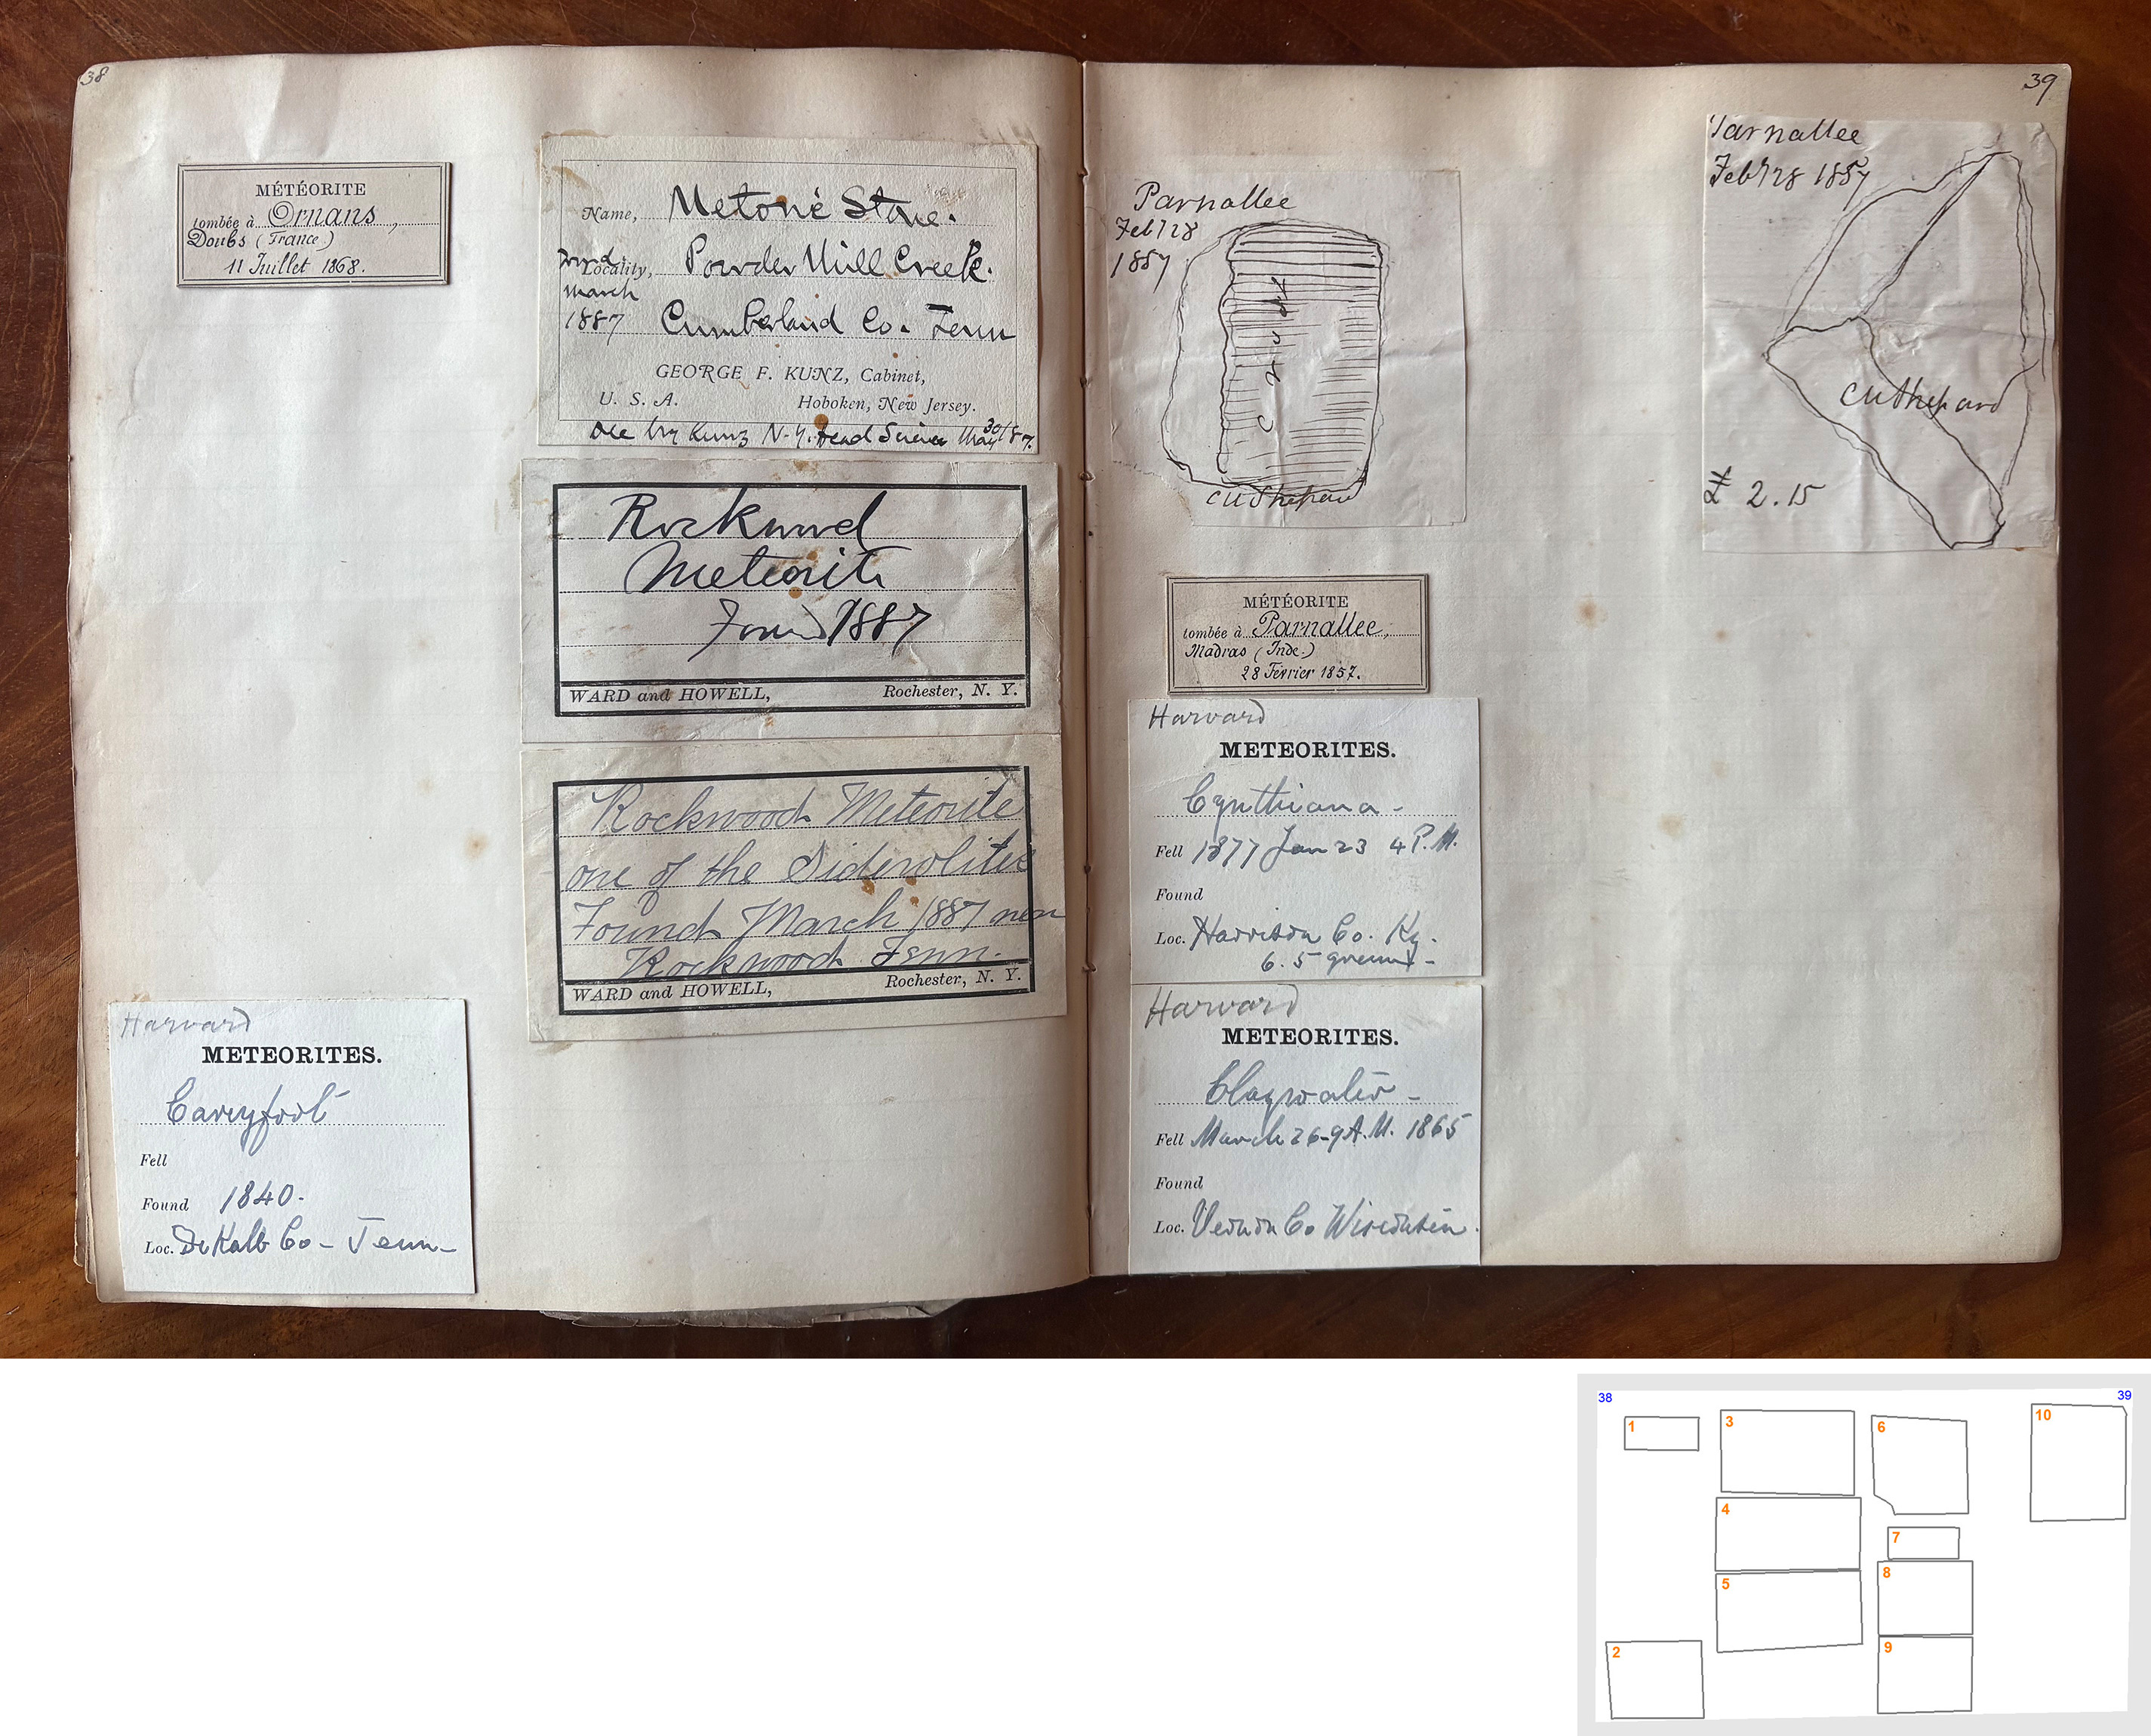 38
MÉTÉORITE
tombée à Ornans,
Doubs (France)
11 Juillet 1868.
Harvard
METEORITES.
Careyfort
Fell
Found 1840.
Loc. DeKalb Co - Tenn -
Name, Meteoric Stone.
Found
Locality, Powder Mill Creek.
March
1887 Cumberland Co. Tenn
GEORGE F. KUNZ, Cabinet,
U. S. A. Hoboken, New Jersey.
by Kunz N.Y. Acad Science May 30/87.
Rockwood
Meteorite
Found 1887
WARD and HOWELL, Rochester, N. Y.
Rockwood Meteorite
one of the Siderolites
Found March 1887 near
Rockwood Tenn.
WARD and HOWELL, Rochester, N. Y.
39
Parnallee
Feb 28
1857
Crust
CUShepard
MÉTÉORITE
tombée à Parnallee,
Madras (Inde.)
28 Février 1857.
Harvard
METEORITES.
Cynthiana -
Fell 1877 Jan 23 4 P.M.
Found
Loc. Harrison Co. Ky.
6.5 grams -
Harvard
METEORITES.
Claywater -
Fell March 26 - 9 A.M. 1865
Found
Loc. Vernon Co Wisconsin.
Parnallee
Feb 28 1857
CUShepard
2.15
38
39
1
3
6
10
4
7
5
8
2
9